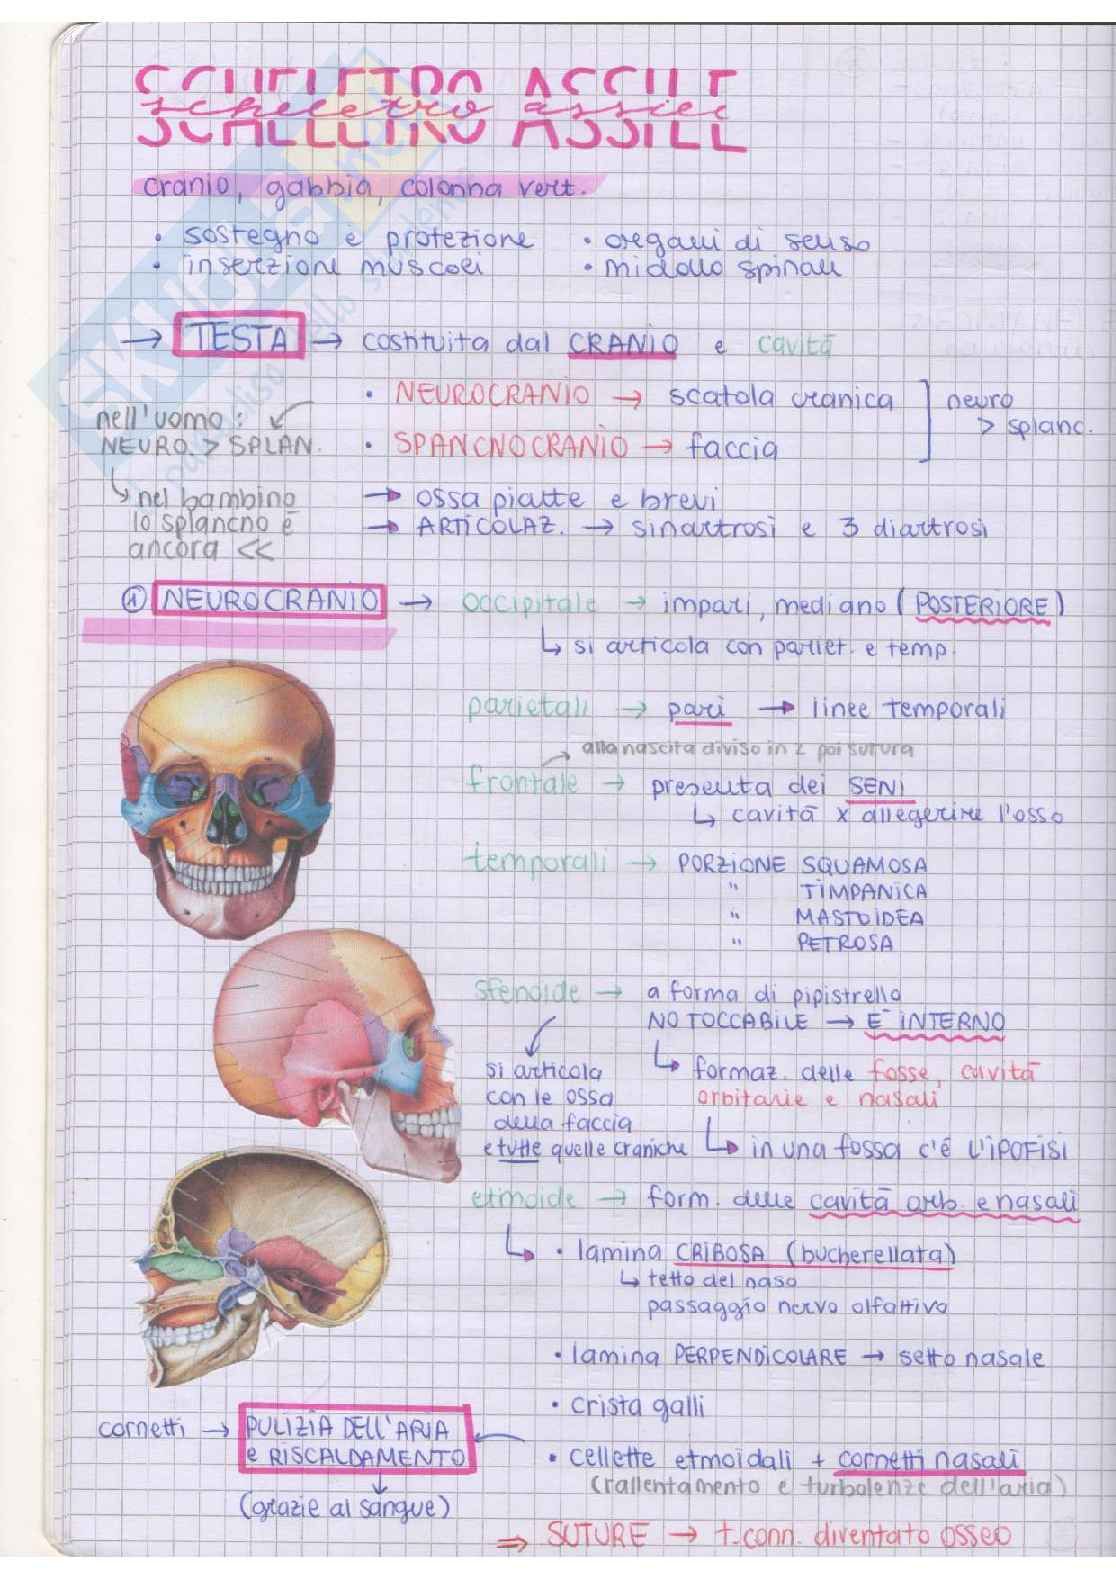 SCHELETRO ASSILE
scheletro assile
cranio, gabbia, colonna vert.
• sostegno e protezione
• inserzione muscoli
• organi di senso
• midollo spinale
→ TESTA → costituita dal CRANIO e cavità
• NEUROCRANIO → scatola cranica
• SPANCNOCRANIO → faccia
neuro
> splanc.
nell'uomo:
NEURO. > SPLAN.
↳ nel bambino
lo splancno è
ancora <<
→ ossa piatte e brevi
→ ARTICOLAZ. → sinartrosi e 3 diartrosi
① NEUROCRANIO → occipitale → impari, mediano (POSTERIORE)
↳ si articola con pariet. e temp.
parietali → pari → linee temporali
→ alla nascita diviso in 2 poi sutura
frontale → presenta dei SENI
↳ cavità x alleggerire l'osso
temporali → PORZIONE SQUAMOSA
" TIMPANICA
" MASTOIDEA
" PETROSA
sfenoide → a forma di pipistrello
NO TOCCABILE → E' INTERNO
si articola
con le ossa
della faccia
e tutte quelle craniche
↳ formaz. delle fosse, cavità
orbitarie e nasali
↳ in una fossa c'é L'IPOFISI
etmoide → form. delle cavità orb. e nasali
↳ • lamina CRIBOSA (bucherellata)
↳ tetto del naso
passaggio nervo olfattivo
• lamina PERPENDICOLARE → setto nasale
• crista galli
• cellette etmoidali + cornetti nasali
(rallentamento e turbolenze dell'aria)
cornetti → PULIZIA DELL'ARIA
e RISCALDAMENTO
(grazie al sangue)
⇒ SUTURE → t. conn. diventato osseo